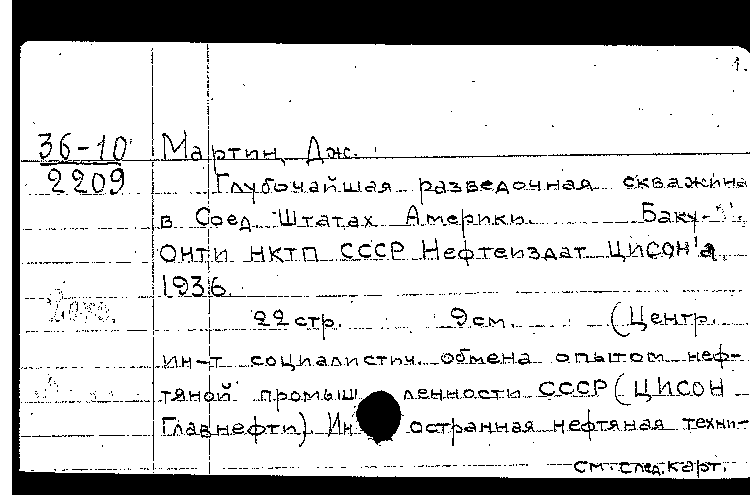 1.
36-10 Мартин, Дж.
2209 Глубочайшая разведочная скважина
в Соед. Штатах Америки. Баку-
ОНТИ НКТП СССР Нефтеиздат ЦИСОН'а,
1936.
22 стр. 9 см. (Центр.
ин-т социалистич. обмена опытом неф-
тяной промышленности СССР (ЦИСОН
Главнефти). Иностранная нефтяная техни-
см. след. карт.